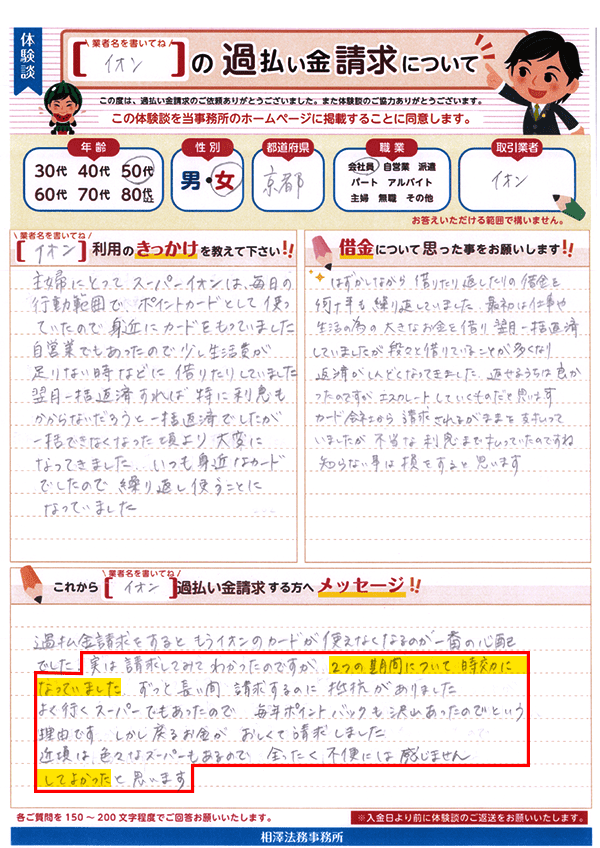 体験談
業者名を書いてね
[イオン]の過払い金請求について
この度は、過払い金請求のご依頼ありがとうございました。また体験談のご協力ありがとうございます。
この体験談を当事務所のホームページに掲載することに同意します。
年齢
30代 40代 50代
60代 70代 80代以上
性別
男・女
都道府県
京都
職業
会社員 自営業 派遣
パート アルバイト
主婦 無職 その他
取引業者
イオン
お答えいただける範囲で構いません。
業者名を書いてね
[イオン]利用のきっかけを教えて下さい!!
主婦にとって スーパーイオンは、毎日の
行動範囲で、ポイントカードとして使っ
ていたので身近にカードをもっていました
自営業でもあったので少し生活費が
足りない時などに 借りたりしていました
翌月一括返済すれば 特に利息も
かからないだろうと一括返済でしたが
一括できなくなった頃より 大変に
なってきました いつも身近なカード
でしたので 繰り返し使うことに
なっていました
借金について思った事をお願いします!!
はずかしながら 借りたり返したりの借金を
何十年も繰り返していました 最初は仕事や
生活の為の大きなお金を借り 翌月一括返済
していましたが 段々と借りていることが多くなり
返済がしんどくなってきました 返せるうちは良か
ったのですが エスカレートしていくものだと思います
カード会社から 請求されるがままを支払って
いましたが 不当な利息まで払っていたのですね
知らない事は損をすると思います
業者名を書いてね
これから[イオン]過払い金請求する方へメッセージ!!
過払金請求をすると もうイオンのカードが使えなくなるのが一番の心配
でした 実は請求してみてわかったのですが、2つの期間について 時効に
なっていました ずっと長い間 請求するのに 抵抗がありました
よく行くスーパーでもあったので 毎年ポイントバックも沢山あったのでという
理由です しかし戻るお金が おしくて請求しました
近頃は 色々なスーパーもあるので 全ったく 不便には感じません
してよかったと思います
各ご質問を150～200文字程度でご回答お願いいたします。
※入金日より前に体験談のご返送をお願いいたします。
相澤法務事務所